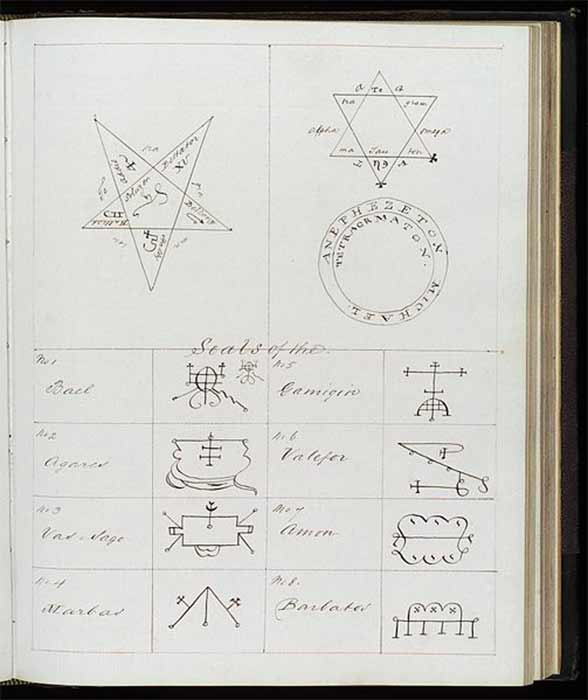 na
Bellator
XV
Bellony
Halliza
CII
α Te a
na gram
alpha omega
ma Tau ton
ANEPHEZETON MICHAEL
TETRAGRMATON
Seals of the.
No 1
Bael
No 2
Agares
No 3
Vas-Sago
No 4
Marbas
No 5
Gamigin
No 6
Valefor
No 7
Amon
No 8.
Barbatos